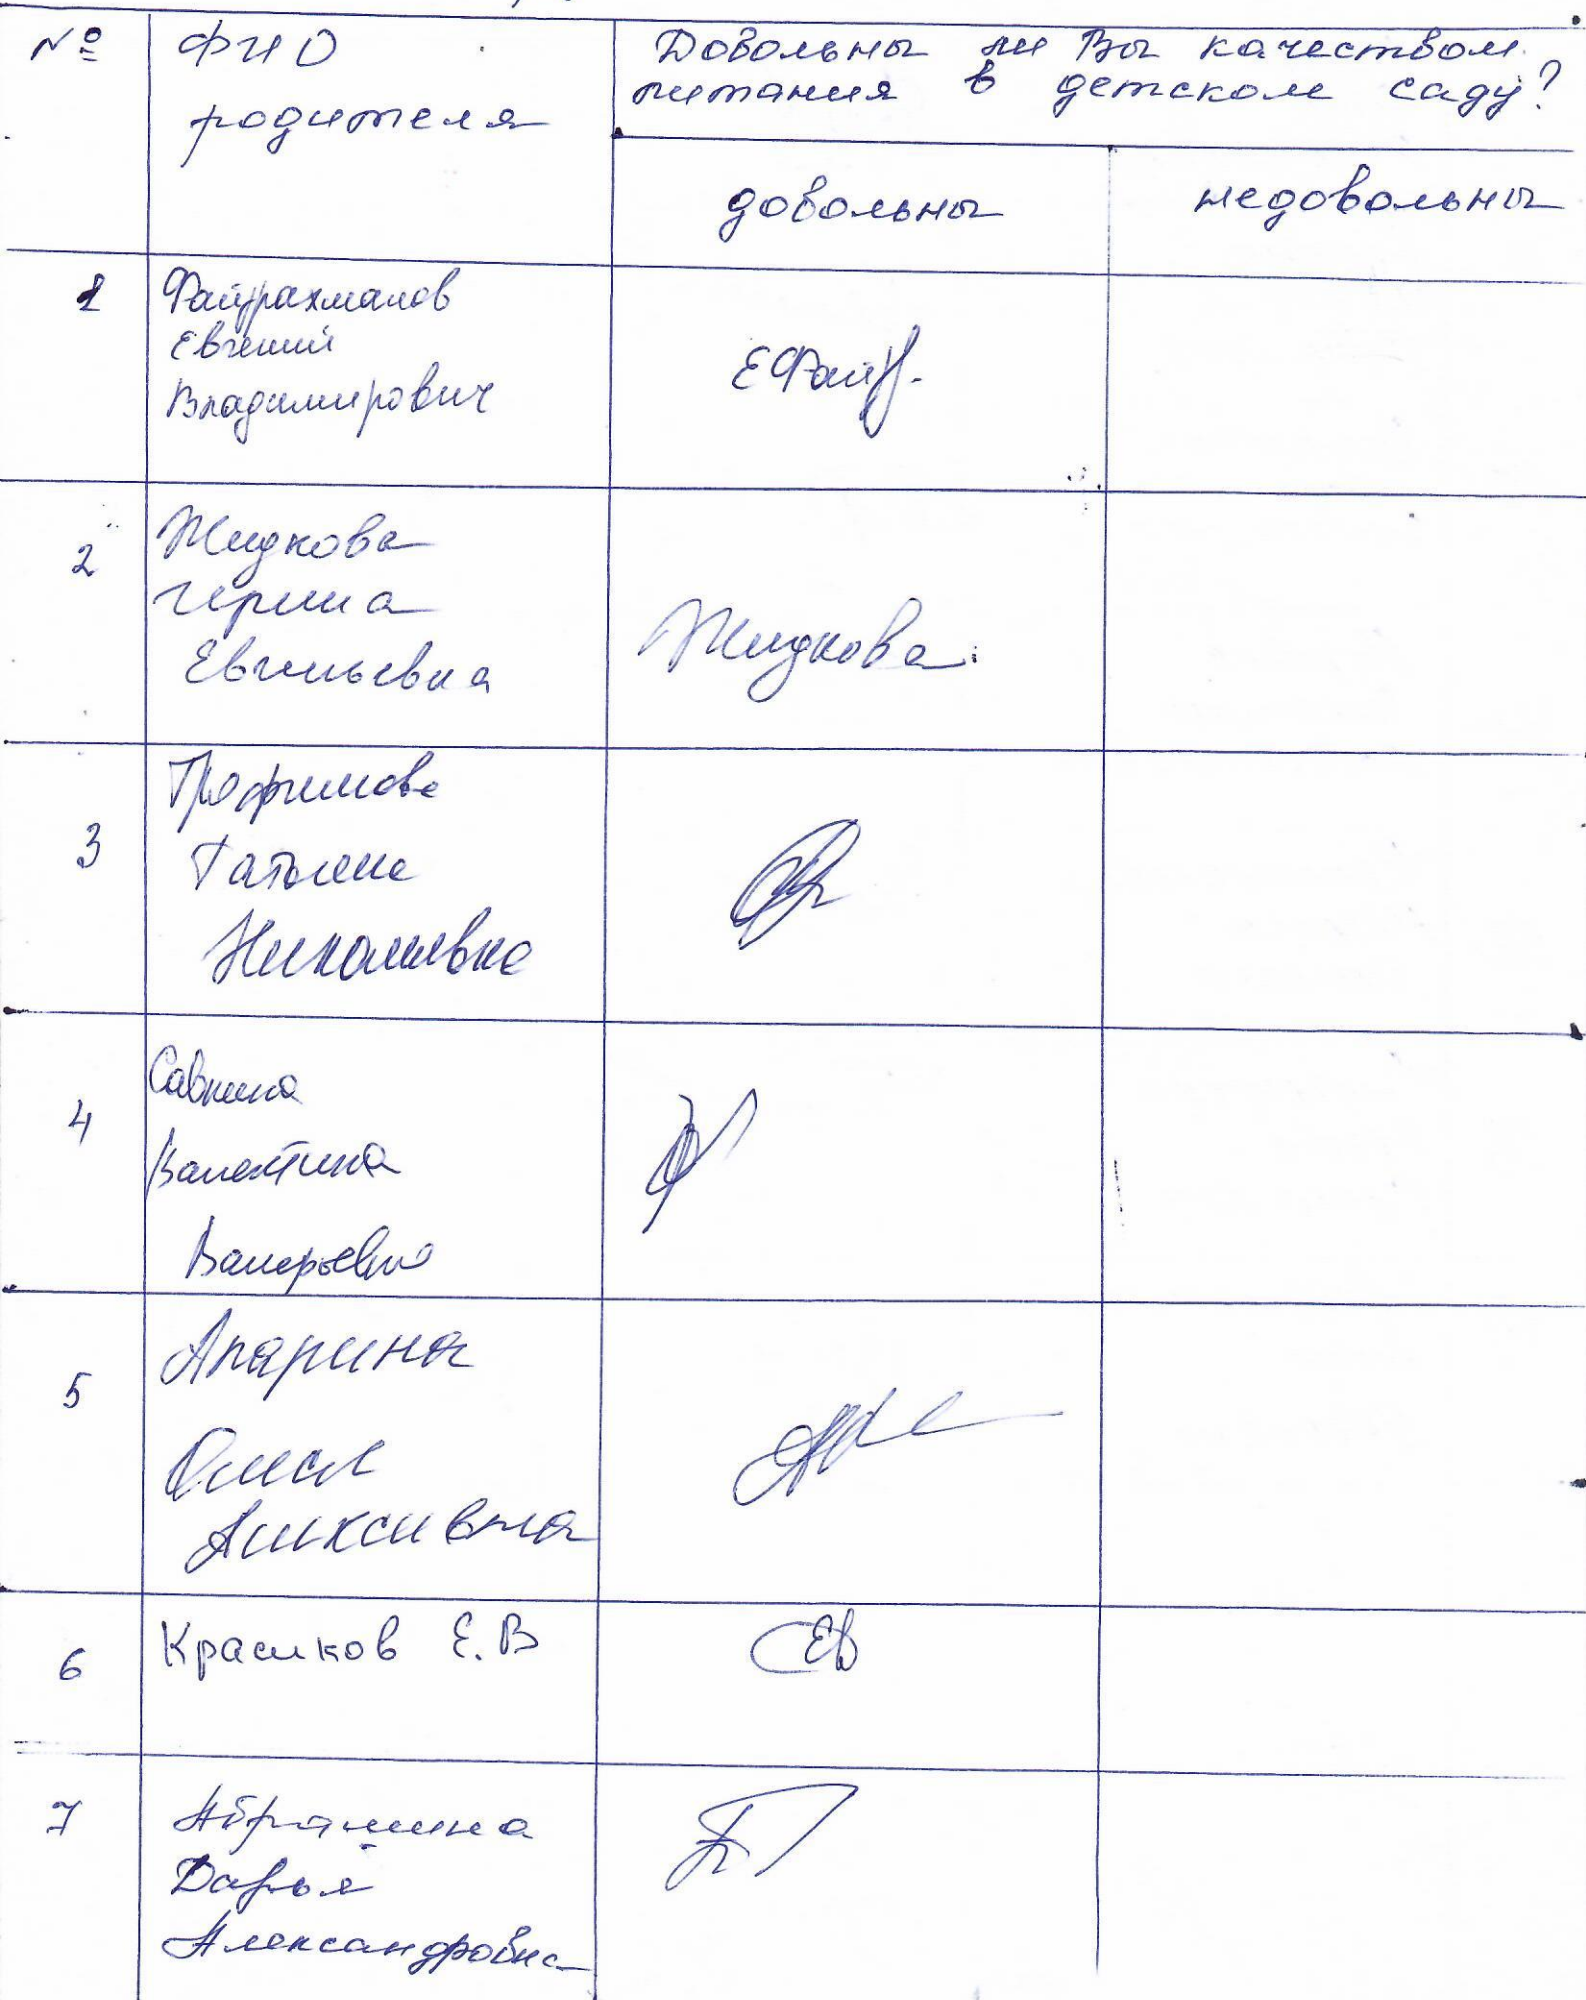 № ФИО Довольны ли Вы качеством
родителя питания в детском саду?
довольны недовольны
1 Файрахманов
Евгений
Владимирович
ЕФайр.
2 Жидкова
Ирина
Евгеньевна
Жидкова
3 Трофимова
Татьяна
Николаевна
4 Савкина
Валентина
Валерьевна
5 Апарина
Олеся
Алексеевна
6 Красиков Е.В
7 Абрамина
Дарья
Александровна